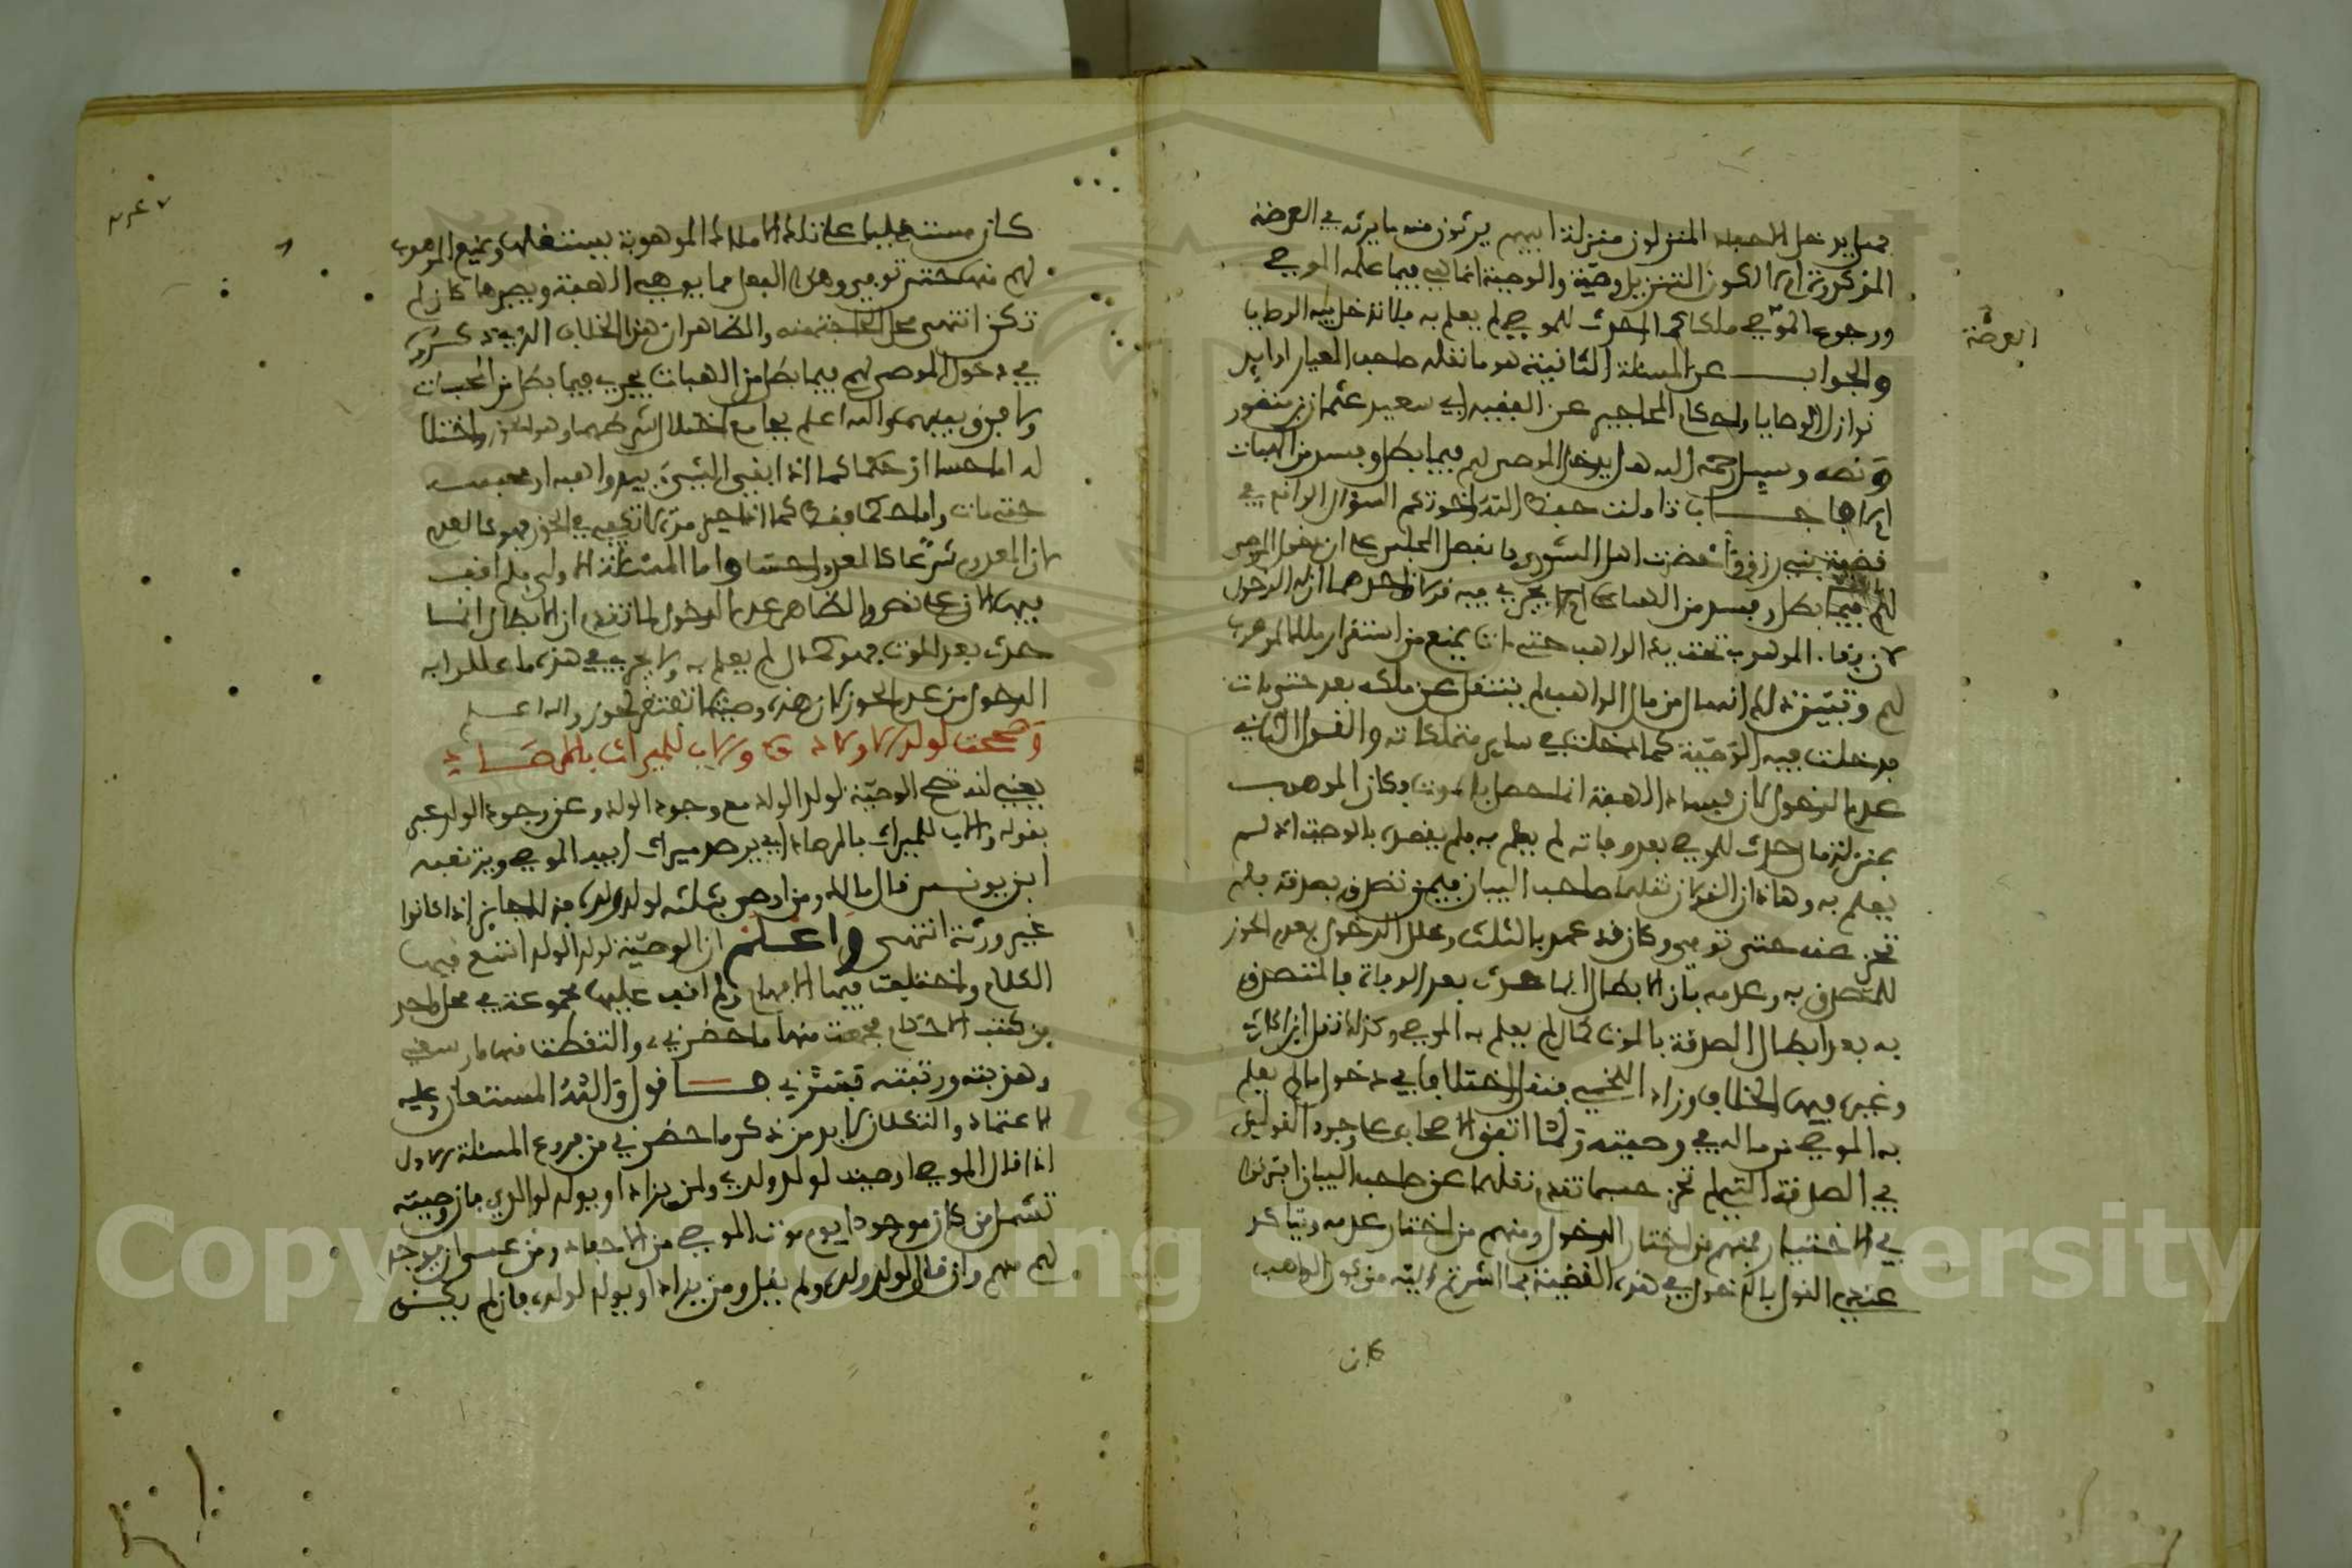 فهل يدخل الاحفاد المنزلون منزلة ابيهم يرثون منه ما يرثه في العرضة
المذكورة ام لا لكون التنزيل وصية والوصية انما هي فيما علمه الموصي
ورجوع الموصى ملكا كمال حدث للموصي لم يعلم به فلا تدخل فيه الوصايا
العرضة
والجواب عن المسئلة الثانية هو ما نقله صاحب المعيار اواير
نوازل الوصايا واحكام المحاجير عن الفقيه ابي سعيد عثمان بن منظور
ونصه وسيل رحمه الله هل يدخل الموصى لهم فيما بطل وفسد من الهبات
ام لا فاجاب تناولت حفظك الله واخوتكم السؤال الواقع في
قضية بني رزقون احضرت اهل الشورى فانفصل المجلس على ان دخول الموصى
لهم فيما بطل وفسد من الهبات انما يجري فيه قولان احدهما ان له الدخول
لان بقاء الموهوب تحت يد الواهب حتى مات يمنع من استقرار ملك الموهوب
لهم وتبين بذلك انه مال من مال الواهب لم ينتقل عن ملكه بعد حتى مات
فدخلت فيه الوصية كما دخلت في ساير متملكاته والقول الثاني
عدم الدخول لان فساد الهبة انما حصل بالموت وكان الموهوب
بمنزلة مال حدث للموصي بعد وفاته لم يعلم به فلم يقصده بالوصية اذ لم
يعلم به وهاذان القولان نقلهما صاحب البيان فيمن تصدق بصدقة فلم
تحز عنه حتى توفي وكان قد عهد بالثلث وعلل الدخول بعدم الحوز
للمتصدق به وعدمه بان الابطال انما حدث بعد الوفاة فالمتصدق
به بعد ابطال الصدقة بالموت كمال لم يعلم به الموصي وكذلك نقل ابن الحارث
وغيره فيها الخلاف وزاد اللخمي فنقل اختلافا في دخول ما لم يعلم
به الموصي من ماله في وصيته ولما اتفق الاصحاب على وجود القولين
في الصدقة التي لم تحز حسبما تقدم نقلهما عن صاحب البيان افترقوا
في الاختيار فمنهم من اختار الدخول ومنهم من اختار عدمه وتاكد
عندي القول بالدخول في هذه القضية بما اشرتم اليه من كون الواهب
كان
كان مستغلبا على تلك الاملاك الموهوبة يستغلها ويمنع الموهوب
لهم منها حتى توفي وهذا الفعل مما يوهن الهبة ويصيرها كان لم
تكن انتهى محل الحاجة منه والظاهر ان هذا الخلاف الذي ذكروه
في دخول الموصى لهم فيما بطل من الهبات يجري فيما بطل من الحبسات
ولا فرق بينهما والله اعلم بجامع اختلال شرطهما وهو الحوز واختلا
له اما حسا او حكما كما اذا بقي الشيء بيد واهبه او محبسه
حتى مات واما حكما فقط كما اذا حيز مدة لا تكفي في الحوز فهو كالعدم
لان المعدوم شرعا كالمعدوم حسا واما المسئلة الاولى فلم اقف
فيها الان على نص والظاهر عدم الدخول لما تقدم ان الابطال انما
حدث بعد الموت فهو كمال لم يعلم به ولا يجري في هذه ما عللوا به
الدخول من عدم الحوز لان هذه وصية لا تفتقر لحوز والله اعلم
وصححت لولد لا ولاد وولاب للميراث بالمرصاد
يعني انه تصح الوصية لولد الولد مع وجود الولد وعن وجود الولد عبر
بقوله والاب للميراث بالمرصاد اي يرصد ميراث ابيه الموصي ويرتقبه
ابن يونس قال مالك ومن اوصى بثلثه لولد ولده فذلك جايز اذا كانوا
غير ورثة انتهى واعلم ان الوصية لولد الولد اتسع فيها
الكلام واختلفت فيها الافهام ولم اقف عليها مجموعة في محل واحد
من كتب الاحكام فجمعت منها ما حضرني والتقطت منها ما وسعني
وهذبته ورتبته فاقول والله المستعان وعليه
الاعتماد والتكلان لابد من ذكر ما حضرني من فروع المسئلة الاول
اذا قال الموصي اوصيت لولد ولدي ولمن يزاد او يولد لوالدي فان وصيته
تشمل من كان موجودا يوم موت الموصي من الاحفاد ومن عسى ان يوجد
لهم منهم وان قال لولد ولده ولم يقل ومن يزاد او يولد لولده فان لم يكن
Copyright © King Saud University